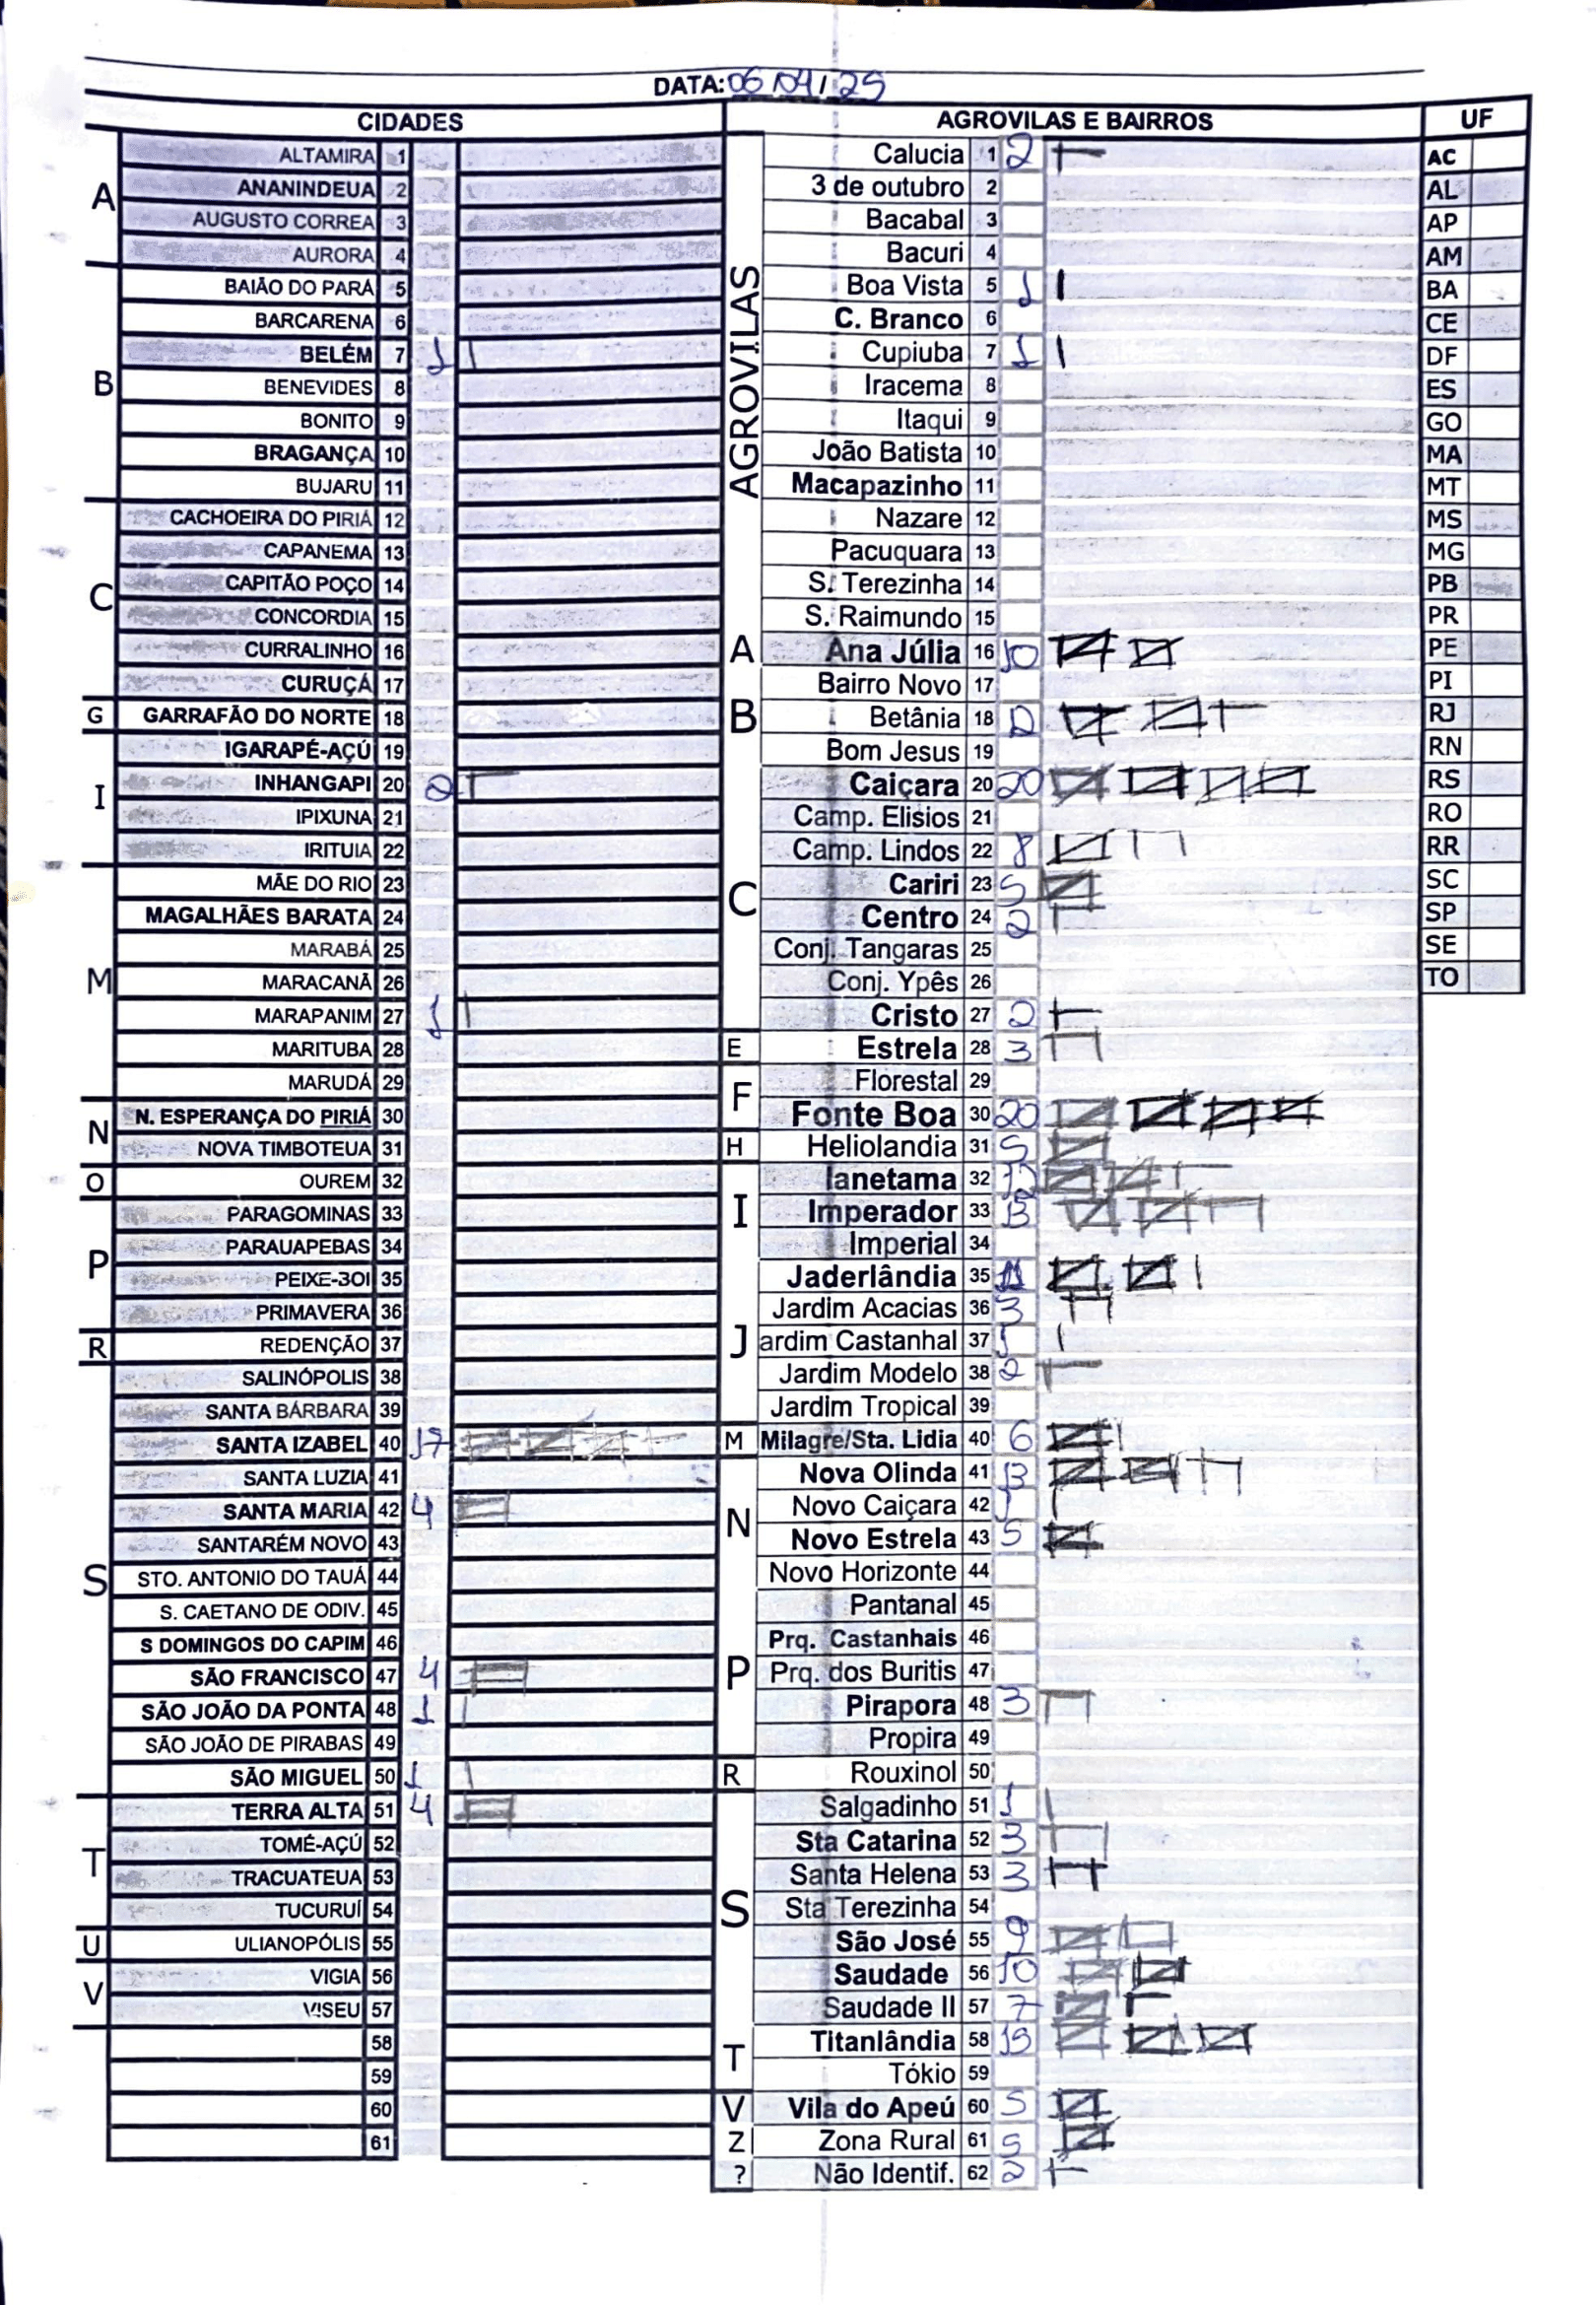 DATA: 06/04/25
CIDADES
A
ALTAMIRA 1
ANANINDEUA 2
AUGUSTO CORREA 3
AURORA 4
B
BAIÃO DO PARÁ 5
BARCARENA 6
BELÉM 7 1
BENEVIDES 8
BONITO 9
BRAGANÇA 10
BUJARU 11
C
CACHOEIRA DO PIRIÁ 12
CAPANEMA 13
CAPITÃO POÇO 14
CONCORDIA 15
CURRALINHO 16
CURUÇÁ 17
G
GARRAFÃO DO NORTE 18
I
IGARAPÉ-AÇÚ 19
INHANGAPI 20 2
IPIXUNA 21
IRITUIA 22
M
MÃE DO RIO 23
MAGALHÃES BARATA 24
MARABÁ 25
MARACANÃ 26
MARAPANIM 27 1
MARITUBA 28
MARUDÁ 29
N
N. ESPERANÇA DO PIRIÁ 30
NOVA TIMBOTEUA 31
O
OUREM 32
P
PARAGOMINAS 33
PARAUAPEBAS 34
PEIXE-BOI 35
PRIMAVERA 36
R
REDENÇÃO 37
S
SALINÓPOLIS 38
SANTA BÁRBARA 39
SANTA IZABEL 40 17
SANTA LUZIA 41
SANTA MARIA 42 4
SANTARÉM NOVO 43
STO. ANTONIO DO TAUÁ 44
S. CAETANO DE ODIV. 45
S DOMINGOS DO CAPIM 46
SÃO FRANCISCO 47 4
SÃO JOÃO DA PONTA 48 1
SÃO JOÃO DE PIRABAS 49
SÃO MIGUEL 50 1
T
TERRA ALTA 51 4
TOMÉ-AÇÚ 52
TRACUATEUA 53
TUCURUÍ 54
U
ULIANOPÓLIS 55
V
VIGIA 56
VISEU 57
58
59
60
61
AGROVILAS E BAIRROS
AGROVILAS
Calucia 1 2
3 de outubro 2
Bacabal 3
Bacuri 4
Boa Vista 5 1
C. Branco 6
Cupiuba 7 1
Iracema 8
Itaqui 9
João Batista 10
Macapazinho 11
Nazare 12
Pacuquara 13
S. Terezinha 14
S. Raimundo 15
A
Ana Júlia 16 10
Bairro Novo 17
B
Betânia 18 12
Bom Jesus 19
C
Caiçara 20 20
Camp. Elisios 21
Camp. Lindos 22 8
Cariri 23 5
Centro 24 2
Conj. Tangaras 25
Conj. Ypês 26
Cristo 27 2
E
Estrela 28 3
F
Florestal 29
Fonte Boa 30 20
H
Heliolandia 31 5
I
Ianetama 32 12
Imperador 33 13
Imperial 34
J
Jaderlândia 35 11
Jardim Acacias 36 3
ardim Castanhal 37 1
Jardim Modelo 38 2
Jardim Tropical 39
M
Milagre/Sta. Lidia 40 6
N
Nova Olinda 41 13
Novo Caiçara 42 1
Novo Estrela 43 5
Novo Horizonte 44
P
Pantanal 45
Prq. Castanhais 46
Prq. dos Buritis 47
Pirapora 48 3
Propira 49
R
Rouxinol 50
S
Salgadinho 51 1
Sta Catarina 52 3
Santa Helena 53 3
Sta Terezinha 54
São José 55 9
Saudade 56 10
Saudade II 57 7
T
Titanlândia 58 15
Tókio 59
V
Vila do Apeú 60 5
Z
Zona Rural 61 5
?
Não Identif. 62 2
UF
AC
AL
AP
AM
BA
CE
DF
ES
GO
MA
MT
MS
MG
PB
PR
PE
PI
RJ
RN
RS
RO
RR
SC
SP
SE
TO